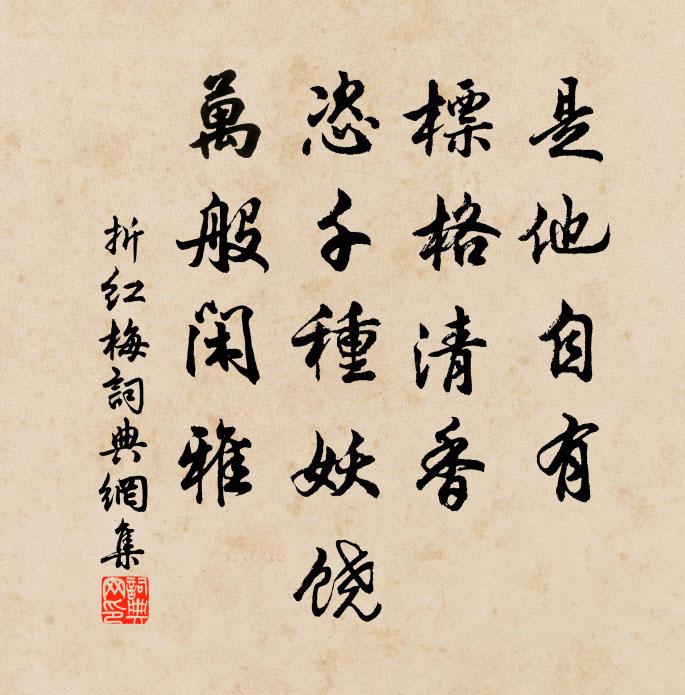 是他自有
標格清香
恣千種妖饶
萬般闲雅
折红梅詞典網集
詞典网印